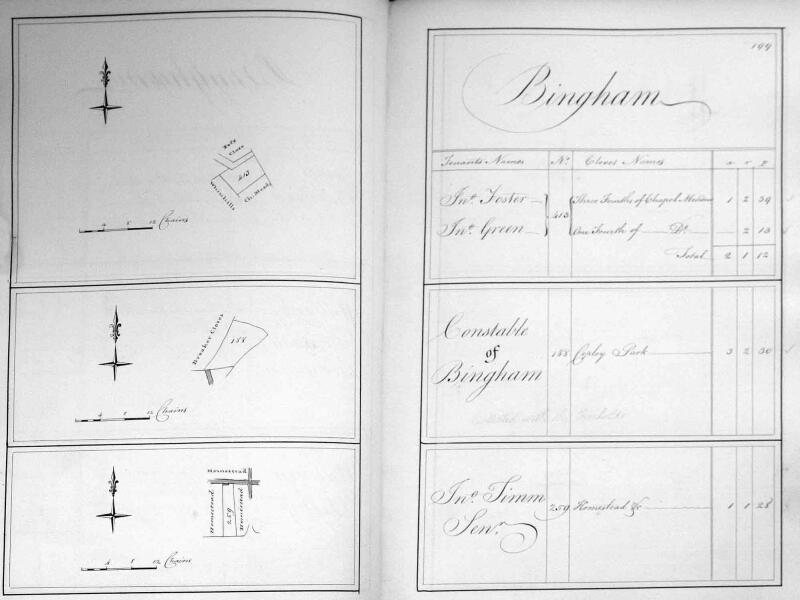 Buts
Close
413
Whitehills
Ch: Mead
4 8 12 Chains
Breaker Closes
188
4 8 12 Chains
Homestead
Homestead
259
Homestead
4 8 12 Chains
199
Bingham
Tenants Names No. Closes Names a r p
Jno. Foster 413 Three Fourths of Chapel Meadow 1 2 39
Jno. Green One Fourth of Do. 2 13
Total 2 1 12
Constable
of
Bingham
188 Copley Park 3 2 30
Jno. Timm
Senr.
259 Homestead &c 1 1 28